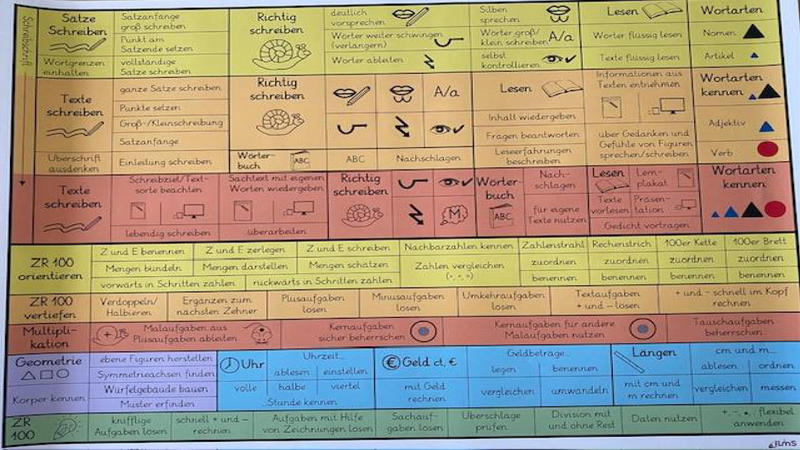 Schreibschrift
Sätze Schreiben
Satzanfänge groß schreiben
Punkt am Satzende setzen
Wortgrenzen einhalten
vollständige Sätze schreiben
Richtig schreiben
deutlich vorsprechen
Wörter weiter schwingen (verlängern)
Wörter ableiten
Silben sprechen
Wörter groß/klein schreiben A/a
selbst kontrollieren
Lesen
Wörter flüssig lesen
Texte flüssig lesen
Wortarten
Nomen
Artikel
Texte schreiben
ganze Sätze schreiben
Punkte setzen
Groß-/Kleinschreibung
Satzanfänge
Überschrift ausdenken
Einleitung schreiben
Richtig schreiben
A/a
Wörterbuch
ABC
ABC
Nachschlagen
Lesen
Inhalt wiedergeben
Fragen beantworten
Leseerfahrungen beschreiben
Informationen aus Texten entnehmen
über Gedanken und Gefühle von Figuren sprechen/schreiben
Wortarten kennen
Adjektiv
Verb
Texte schreiben
Schreibziel/Textsorte beachten
lebendig schreiben
Sachtext mit eigenen Worten wiedergeben
überarbeiten
Richtig schreiben
M
Wörterbuch
ABC
Nachschlagen
für eigene Texte nutzen
Lesen
Lernplakat
Texte vorlesen
Präsentation
Gedicht vortragen
Wortarten kennen
ZR 100 orientieren
Z und E benennen
Z und E zerlegen
Z und E schreiben
Nachbarzahlen kennen
Zahlenstrahl
Rechenstrich
100er Kette
100er Brett
Mengen bündeln
Mengen darstellen
Mengen schätzen
Zahlen vergleichen
zuordnen
zuordnen
zuordnen
zuordnen
vorwärts in Schritten zählen
rückwärts in Schritten zählen
benennen
benennen
benennen
benennen
ZR 100 vertiefen
Verdoppeln/Halbieren
Ergänzen zum nächsten Zehner
Plusaufgaben lösen
Minusaufgaben lösen
Umkehraufgaben lösen
Textaufgaben + und - lösen
+ und - schnell im Kopf rechnen
Multiplikation
Malaufgaben aus Plusaufgaben ableiten
Kernaufgaben sicher beherrschen
Kernaufgaben für andere Malaufgaben nutzen
Tauschaufgaben beherrschen
Geometrie
Körper kennen
ebene Figuren herstellen
Symmetrieachsen finden
Würfelgebäude bauen
Muster erfinden
Uhr
Uhrzeit...
ablesen
einstellen
volle
halbe
viertel
Stunde kennen
€ Geld ct, €
Geldbeträge...
legen
benennen
mit Geld rechnen
vergleichen
umwandeln
Längen
cm und m...
ablesen
ordnen
mit cm und m rechnen
vergleichen
messen
ZR 100
knifflige Aufgaben lösen
schnell + und - rechnen
Aufgaben mit Hilfe von Zeichnungen lösen
Sachaufgaben lösen
Überschläge prüfen
Division mit und ohne Rest
Daten nutzen
+, -, •, : flexibel anwenden